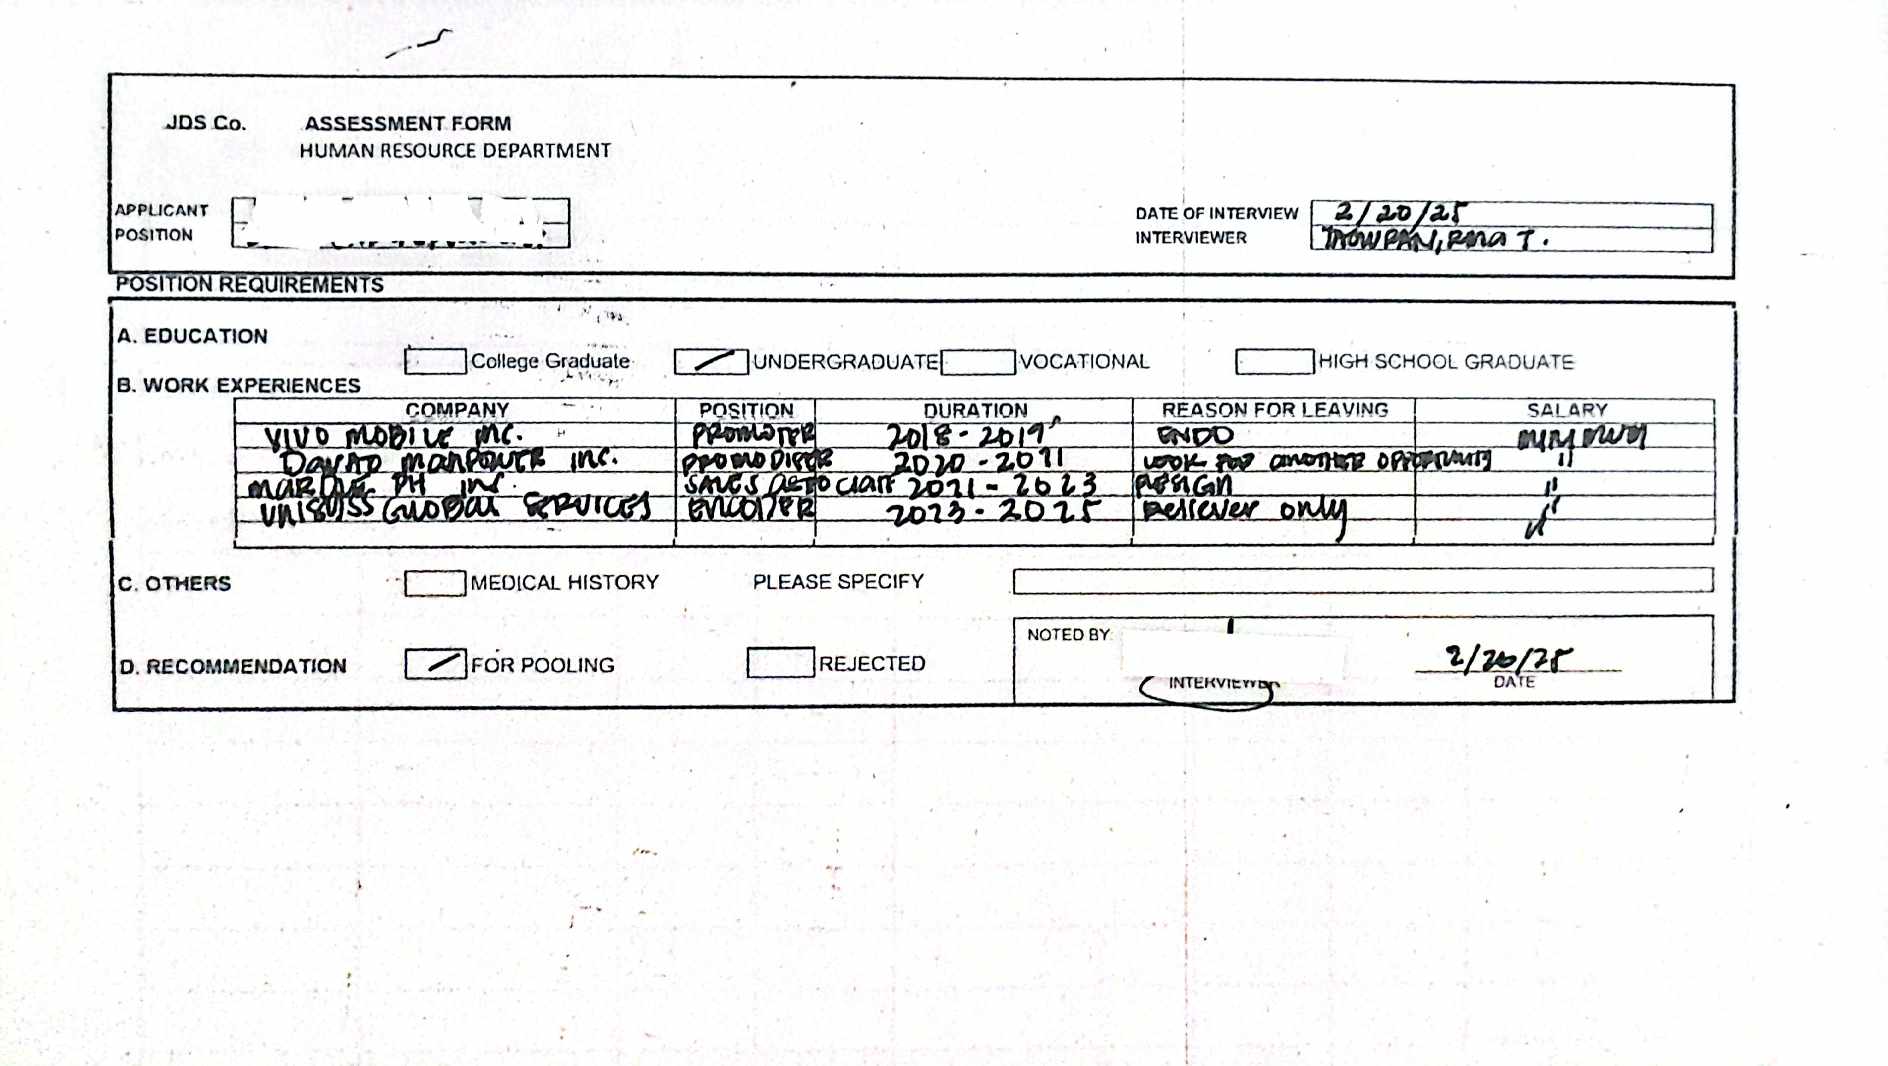 JDS Co. ASSESSMENT FORM
HUMAN RESOURCE DEPARTMENT
APPLICANT
POSITION
DATE OF INTERVIEW 2/20/25
INTERVIEWER T.
POSITION REQUIREMENTS
A. EDUCATION
College Graduate UNDERGRADUATE VOCATIONAL HIGH SCHOOL GRADUATE
B. WORK EXPERIENCES
COMPANY POSITION DURATION REASON FOR LEAVING SALARY
VIVO MOBILE INC. PROMOTER 2018-2019 ENDO MINIMUM
DAVAO MANPOWER INC. PROMODISER 2020-2021 LOOK FOR ANOTHER OPPORTUNITY "
PH INC SALES ASSOCIATE 2021-2023 RESIGN "
GLOBAL SERVICES ENCODER 2023-2025 Reliever only "
"
C. OTHERS MEDICAL HISTORY PLEASE SPECIFY
NOTED BY:
D. RECOMMENDATION FOR POOLING REJECTED
2/20/25
INTERVIEWER DATE